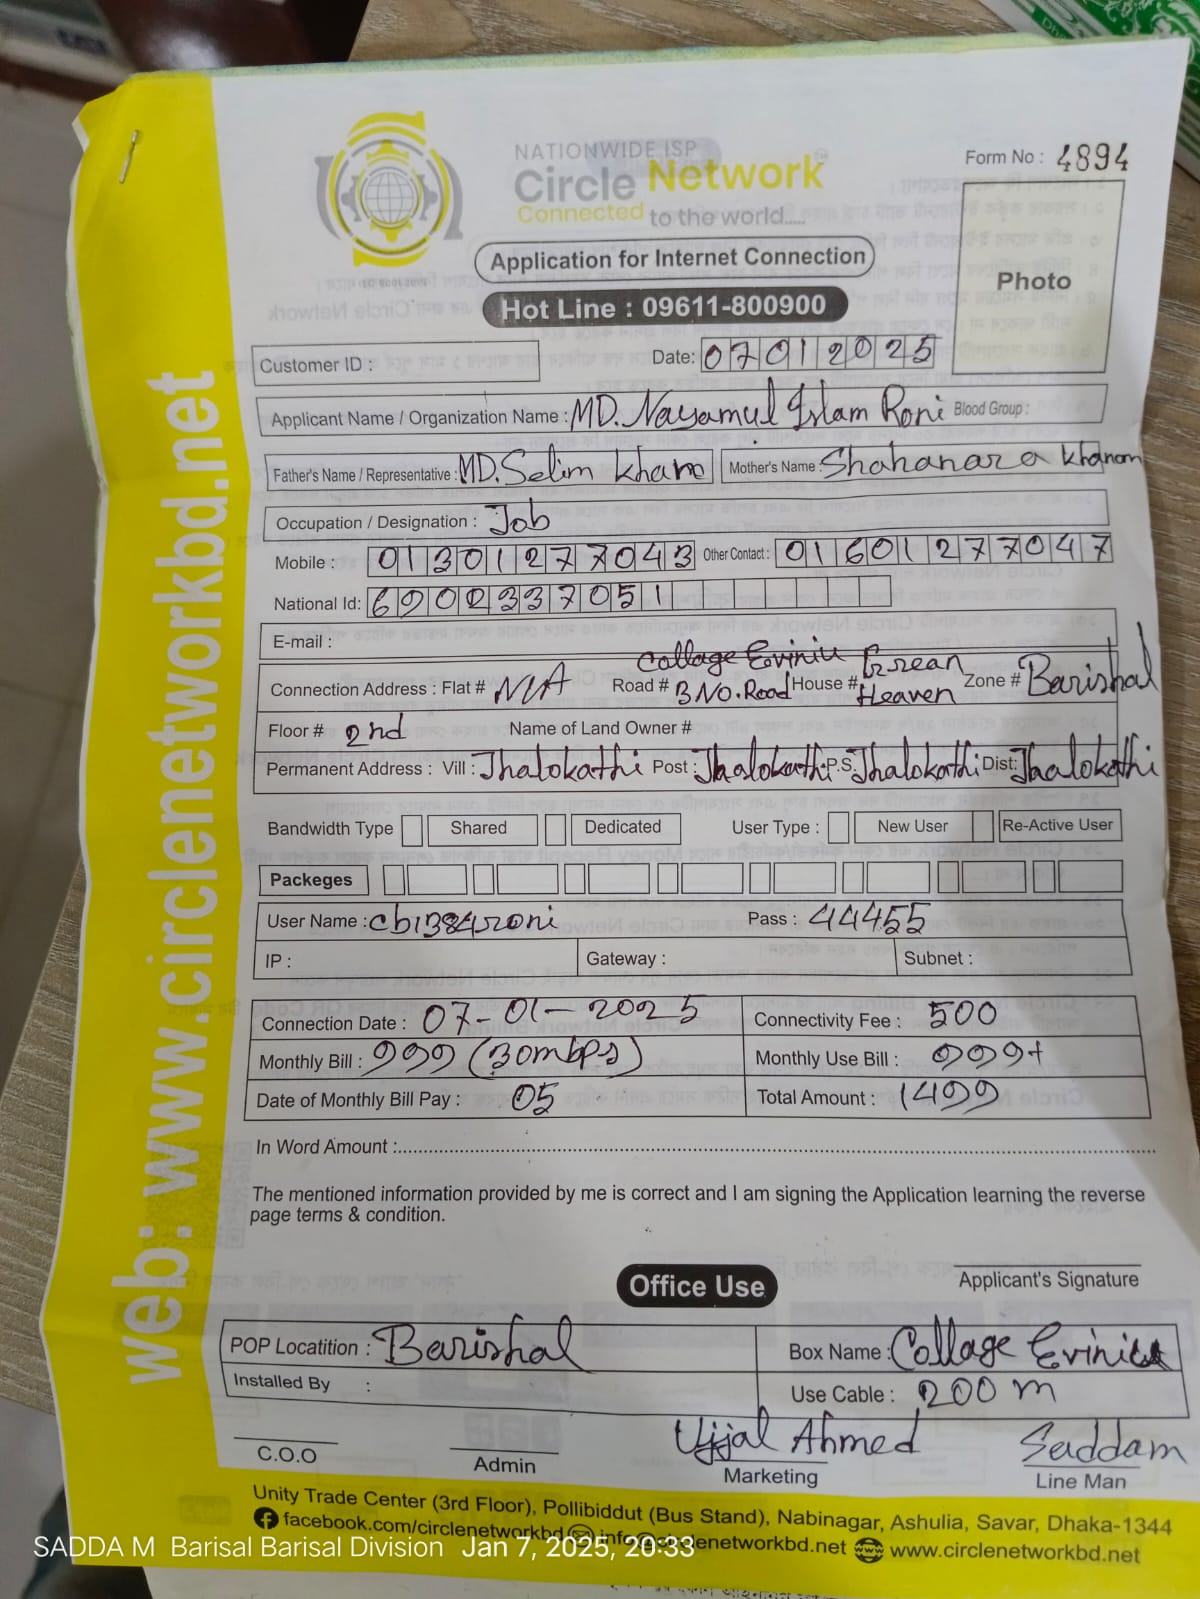 NATIONWIDE ISP
Circle Network
Connected to the world.....
Form No : 4894
ISO 9001:2015
Application for Internet Connection
Photo
Hot Line : 09611-800900
Customer ID :
Date: 07012025
Applicant Name / Organization Name : MD. Nayamul Islam Roni Blood Group :
Father's Name / Representative : MD. Selim Khan Mother's Name : Shahanara Khanom
Occupation / Designation : Job
Mobile : 01301277043 Other Contact : 01601277047
National Id: 6900337051
E-mail :
Connection Address : Flat # N/A Road # Collage Eviniu 3 NO. Road House # Grean Heaven Zone # Barishal
Floor # 2nd Name of Land Owner #
Permanent Address : Vill : Jhalokathi Post : Jhalokathi P.S. Jhalokathi Dist: Jhalokathi
Bandwidth Type Shared Dedicated User Type : New User Re-Active User
Packeges
User Name : cb1384roni Pass : 44455
IP : Gateway : Subnet :
Connection Date : 07-01-2025 Connectivity Fee : 500
Monthly Bill : 999 (30mbps) Monthly Use Bill : 999+
Date of Monthly Bill Pay : 05 Total Amount : 1499
In Word Amount :
The mentioned information provided by me is correct and I am signing the Application learning the reverse
page terms & condition.
Applicant's Signature
Office Use
POP Locatition : Barishal Box Name : Collage Eviniu
Installed By : Use Cable : 200 m
Ujjal Ahmed Saddam
C.O.O Admin Marketing Line Man
Unity Trade Center (3rd Floor), Pollibiddut (Bus Stand), Nabinagar, Ashulia, Savar, Dhaka-1344
facebook.com/circlenetworkbd info@circlenetworkbd.net www.circlenetworkbd.net
web: www.circlenetworkbd.net
SADDA M Barisal Barisal Division Jan 7, 2025, 20:33